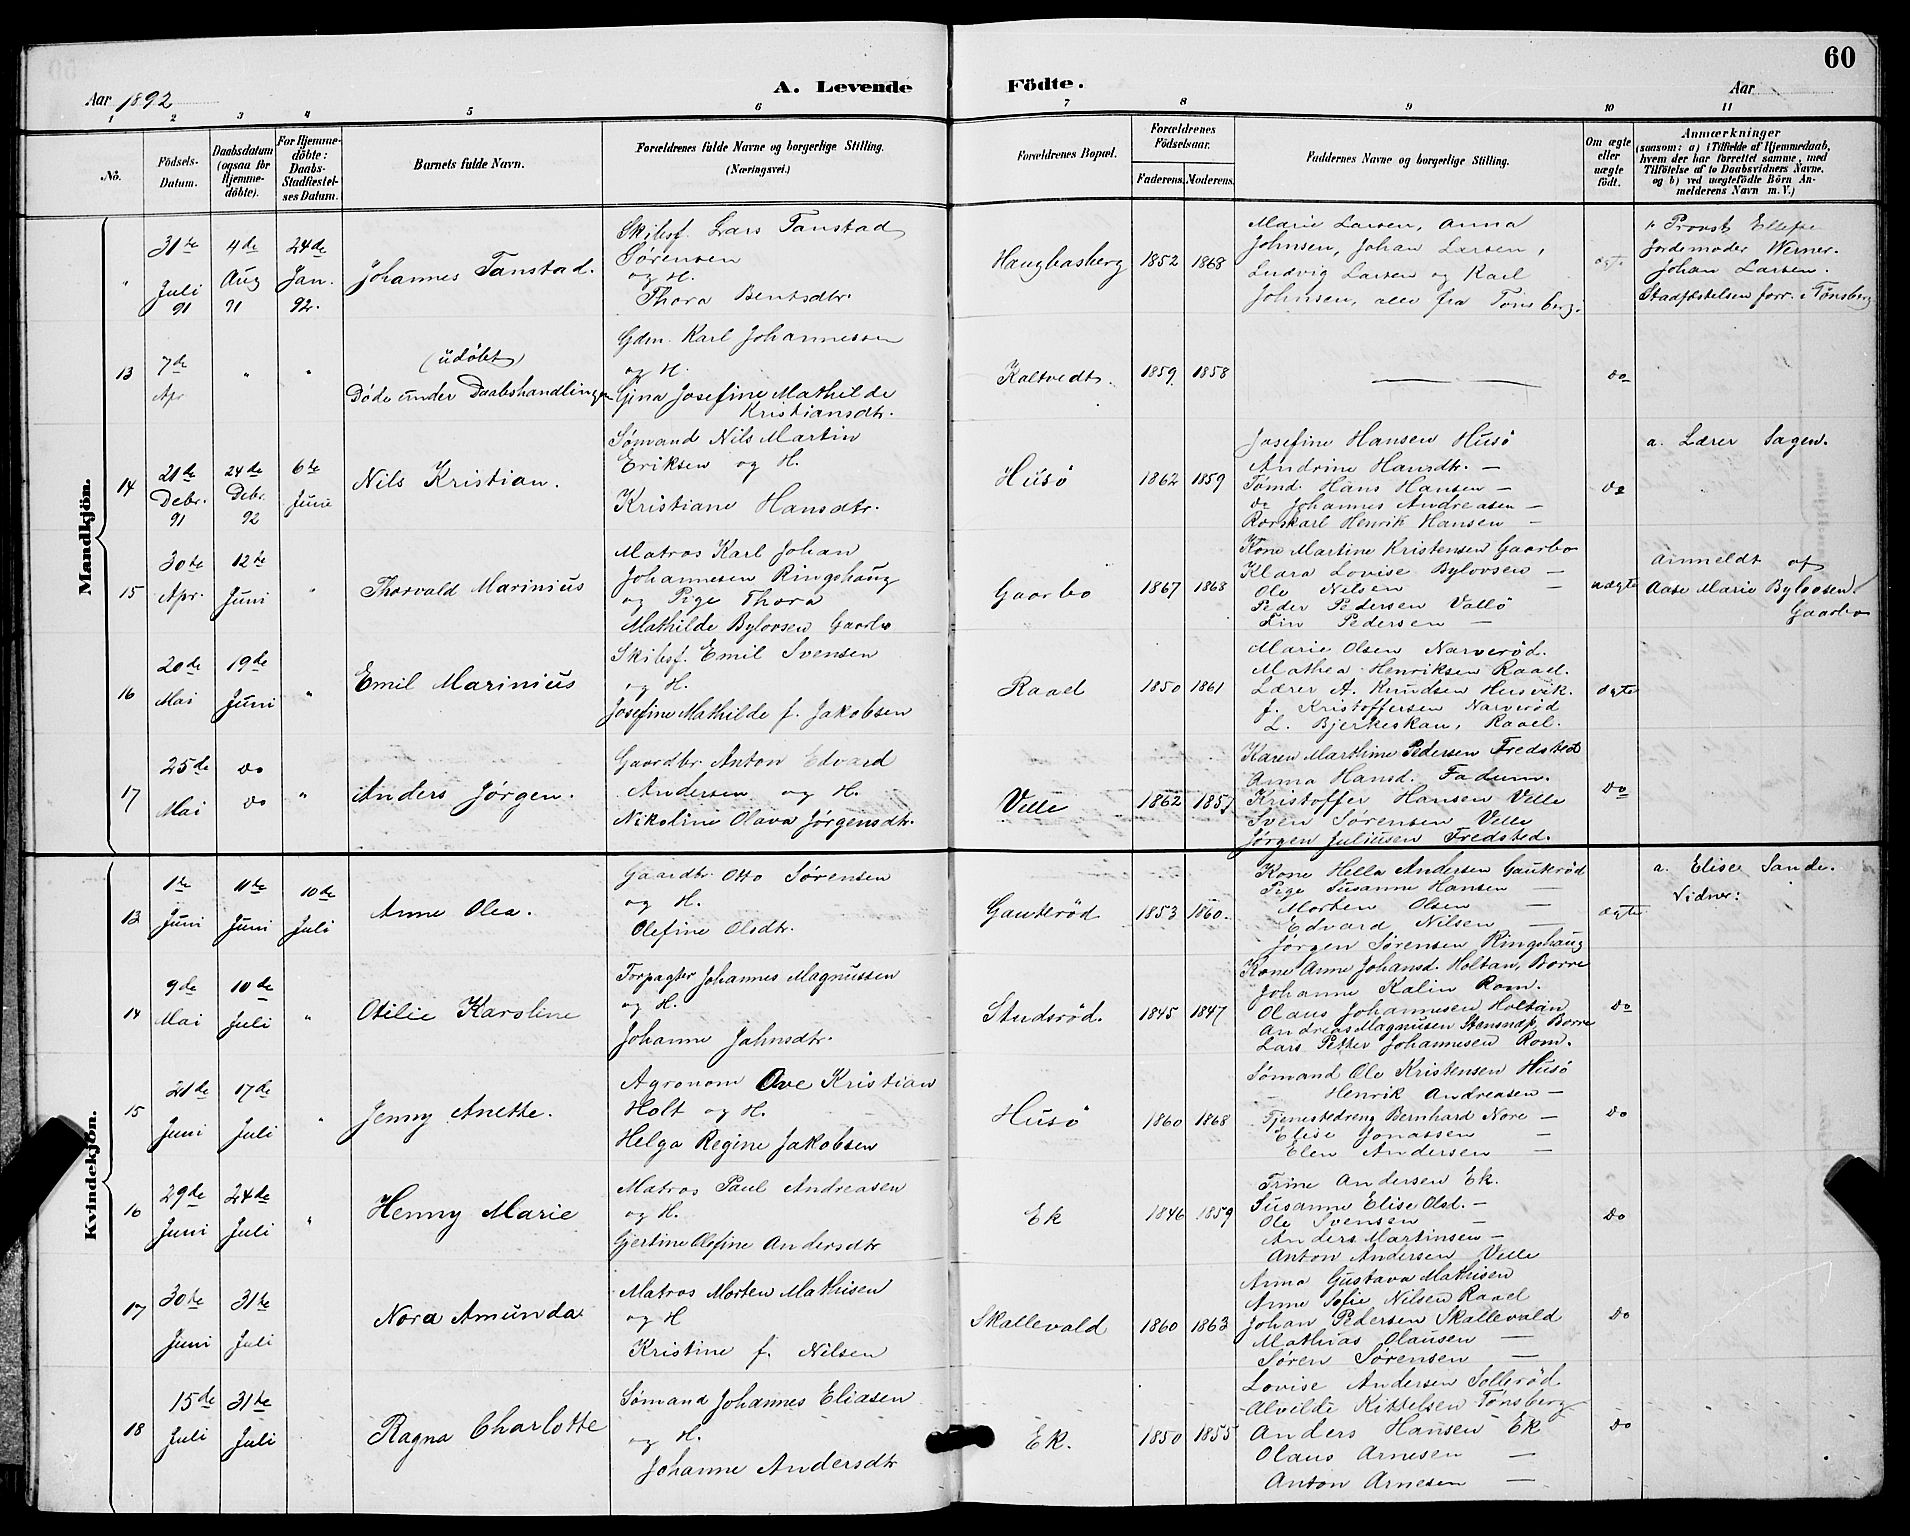 60
Aar 1892
A. Levende Födte.
Aar
1 2 3 4 5 6 7 8 9 10 11
No.
Födsels-
Datum.
Daabsdatum
(ogsaa for
Hjemme-
döbte).
For Hjemme-
döbte:
Daabs-
Stadfæstel-
ses Datum.
Barnets fulde Navn.
Forældrenes fulde Navne og borgerlige Stilling.
(Næringsvei.)
Forældrenes Bopæl.
Forældrenes
Födselsaar.
Faderens. Moderens.
Faddernes Navne og borgerlige Stilling.
Om ægte
eller
uægte
födt.
Anmærkninger
(saasom: a) i Tilfælde af Hjemmedaab,
hvem der har forrettet samme, med
Tilföielse af to Daabsvidners Navne.
og b) ved uægtefödte Börn An-
melderens Navn m. V.)
Mandkjön.
"
31te
Juli
91
4de
Aug
91
24de
Jan.
92.
Johannes Tanstad.
Skibsf. Lars Tanstad
Sørensen
og H.
Thora Bentsdtr.
Haugbasberg
1852 1868
Marie Larsen, Anna
Johnsen, Johan Larsen,
Ludvig Larsen og Karl
Johnsen, alle fra Tønsberg.
ægte
Provst Ellefse
Jordemoder Werner.
Johan Larsen.
Stadfæstelsen forr. i Tønsberg
13
7de
Apr
" "
(udöbt)
Døde under Daabshandlingen
Gdm. Karl Johannessen
og H.
Gina Josefine Mathilde
Kristiansdtr.
Kaltvedt.
1859 1858
do
14
21de
Debr.
91
24de
Debr.
92
6te
Juni
Nils Kristian.
Sømand Nils Martin
Eriksen og H.
Kristiane Hansdtr.
Husö
1862 1859
Josefine Hansen Husö
Andrine Hansdtr. —
Tømd. Hans Hansen —
do Johannes Andreasen —
Rorskarl Henrik Hansen —
do
a. Lærer Sagen.
15
30te
Apr.
12te
Juni
"
Thorvald Marinius
Matros Karl Johan
Johannesen Ringshaug
og Pige Thora
Mathilde Bylovsen Gaarbo
Gaarbo
1867 1868
Kone Martine Kristensen Gaarbo
Klara Lovise Bylovsen —
Ole Nilsen —
Peder Pedersen Vallö
Fin Pedersen —
uægte
Anmeldt af
Aase Marie Bylovsen.
Gaarbo
16
20de
Mai
19de
Juni
"
Emil Marinius
Skibsf. Emil Svensen
og H.
Josefine Mathilde f. Jakobsen
Raael
1850 1861
Marie Olsen Narverød.
Mathea Henriksen Raael.
Lærer A. Knudsen Husvik.
J. Kristoffersen Narverød
L. Bjerkeskau, Raael.
ægte
17
25de
Mai
do
do
"
Anders Jørgen.
Gaardbr. Anton Edvard
Andersen og H.
Nikoline Olava Jørgensdtr.
Velle
1862 1857
Karen Marthine Pedersen Fredsted
Anna Hansd. Fadum.
Kristoffer Hansen Velle
Sven Sørensen Velle
Jørgen Juliusen Fredsted.
do
Kvindekjön.
13
1te
Juni
11te
Juni
10de
Juli
Anne Olea.
Gaardbr. Otto Sörensen
og H.
Olefine Olsdtr.
Gauterød
1853 1860.
Kone Hella Andersen Gaukröd
Pige Susanne Hansen —
Morten Olsen —
Edvard Nilsen —
Jørgen Sørensen Ringshaug
ægte
a. Elise Sande.
Vidner:
14
9de
Mai
10de
Juli
"
Otilie Karoline
Forpagter Johannes Magnussen
og H.
Johanne Jahnsdtr.
Studsrød.
1845 1847
Kone Anne Johansd. Holtan, Borre
Johanne Kalin Rom.
Olaus Johannesen Holtan
Andreas Magnusen Stensndp, Borre
Lars Petter Johannesen Rom.
do
15
21de
Juni
17de
Juli
"
Jenny Anette.
Agronom Ove Kristian
Holt og H.
Helga Regine Jakobsen
Husö
1860 1868
Sömand Ole Kristensen Husö
— Henrik Andreasen —
Tjenestedreng Bernhard Nore —
Elise Jonassen —
Elen Andersen —
do
16
29de
Juni
24de
Juli
"
Henny Marie
Matros Paul Andreasen
og H.
Gjertine Olefine Andersdtr
Ek
1846 1859
Trine Andersen Ek.
Susanne Elise Olsd. —
Ole Svensen —
Anders Martinsen —
Anton Andersen Velle
do
17
30te
Juni
31te
Juli
Nora Amunda
Matros Morten Mathisen
og H
Kristine f. Nilsen
Skallevald
1860 1863
Anna Gustava Mathisen
Anne Sofie Nilsen Raael
Johan Pedersen Skallevald
Mathias Olausen —
Sören Sörensen —
do
18
15de
Juli
31te
Juli
Ragna Charlotte
Sømand Johannes Eliasen
og H.
Johanne Andersdtr
Ek.
1850 1855
Lovise Andersen Solleröd
Alvilde Kittelsen Tønsberg
Anders Hansen Ek
Olaus Arnesen —
Anton Arnesen —
do